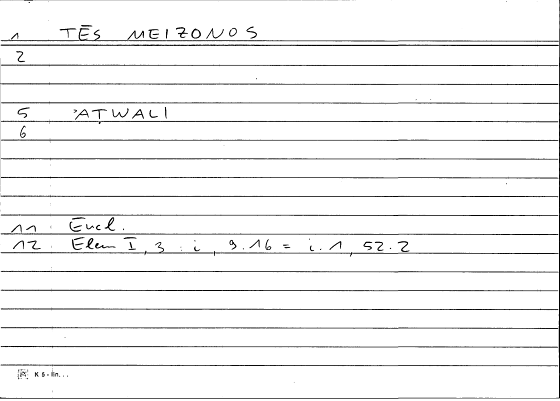 1 TĒS MEIZONOS
2
5 ʾAṬWALI
6
11 Eucl.
12 Elem I, 3 : i, 9.16 = i.1, 52.2
K 5 - lin...